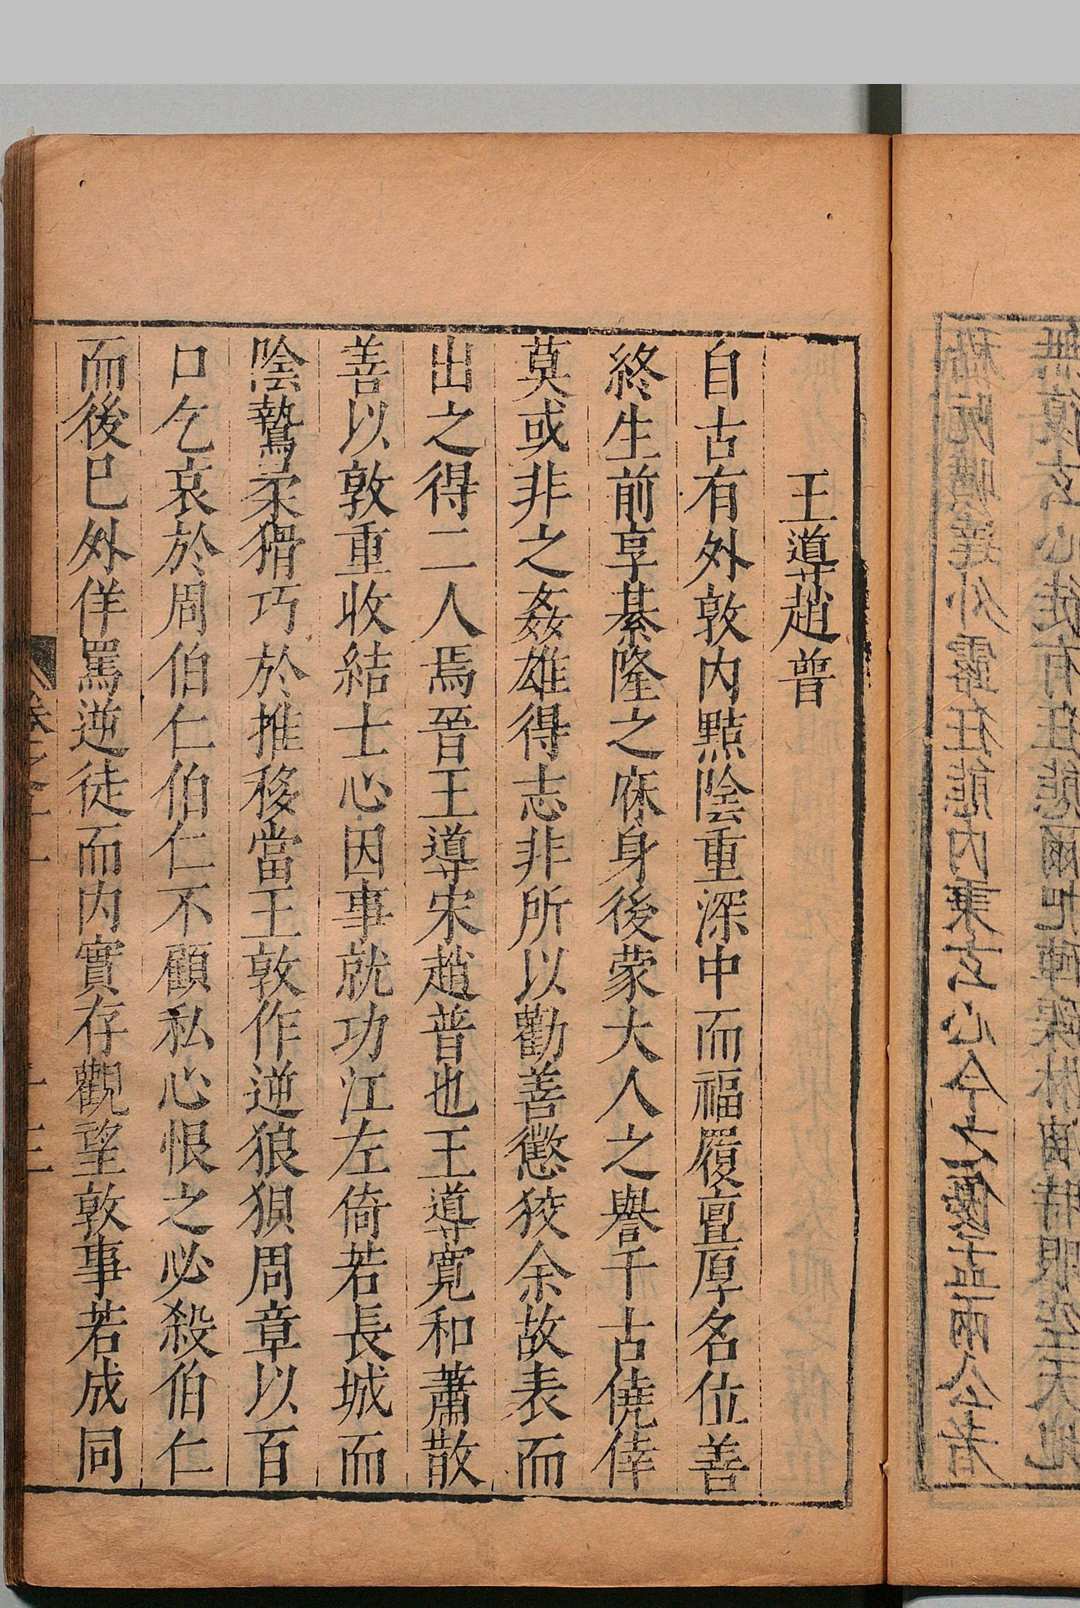 王導趙普
自古有外敦內黠陰重深中而福履亶厚名位善
終生前享綦隆之庥身後蒙大人之譽千古僥倖
莫或非之姦雄得志非所以勸善懲狡余故表而
出之得二人焉晉王導宋趙普也王導寬和蕭散
善以敦重收結士心因事就功江左倚若長城而
陰鷙柔猾巧於推移當王敦作逆狼狽周章以百
口乞哀於周伯仁伯仁不顧私心恨之必殺伯仁
而後已外佯罵逆徒而內實存觀望敦事若成同